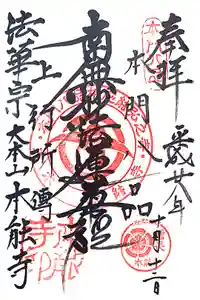 奉拝
平成廿八年
十月十二日
本門八品
南無妙法蓮華経
上行所傳
法華宗大本山本能寺